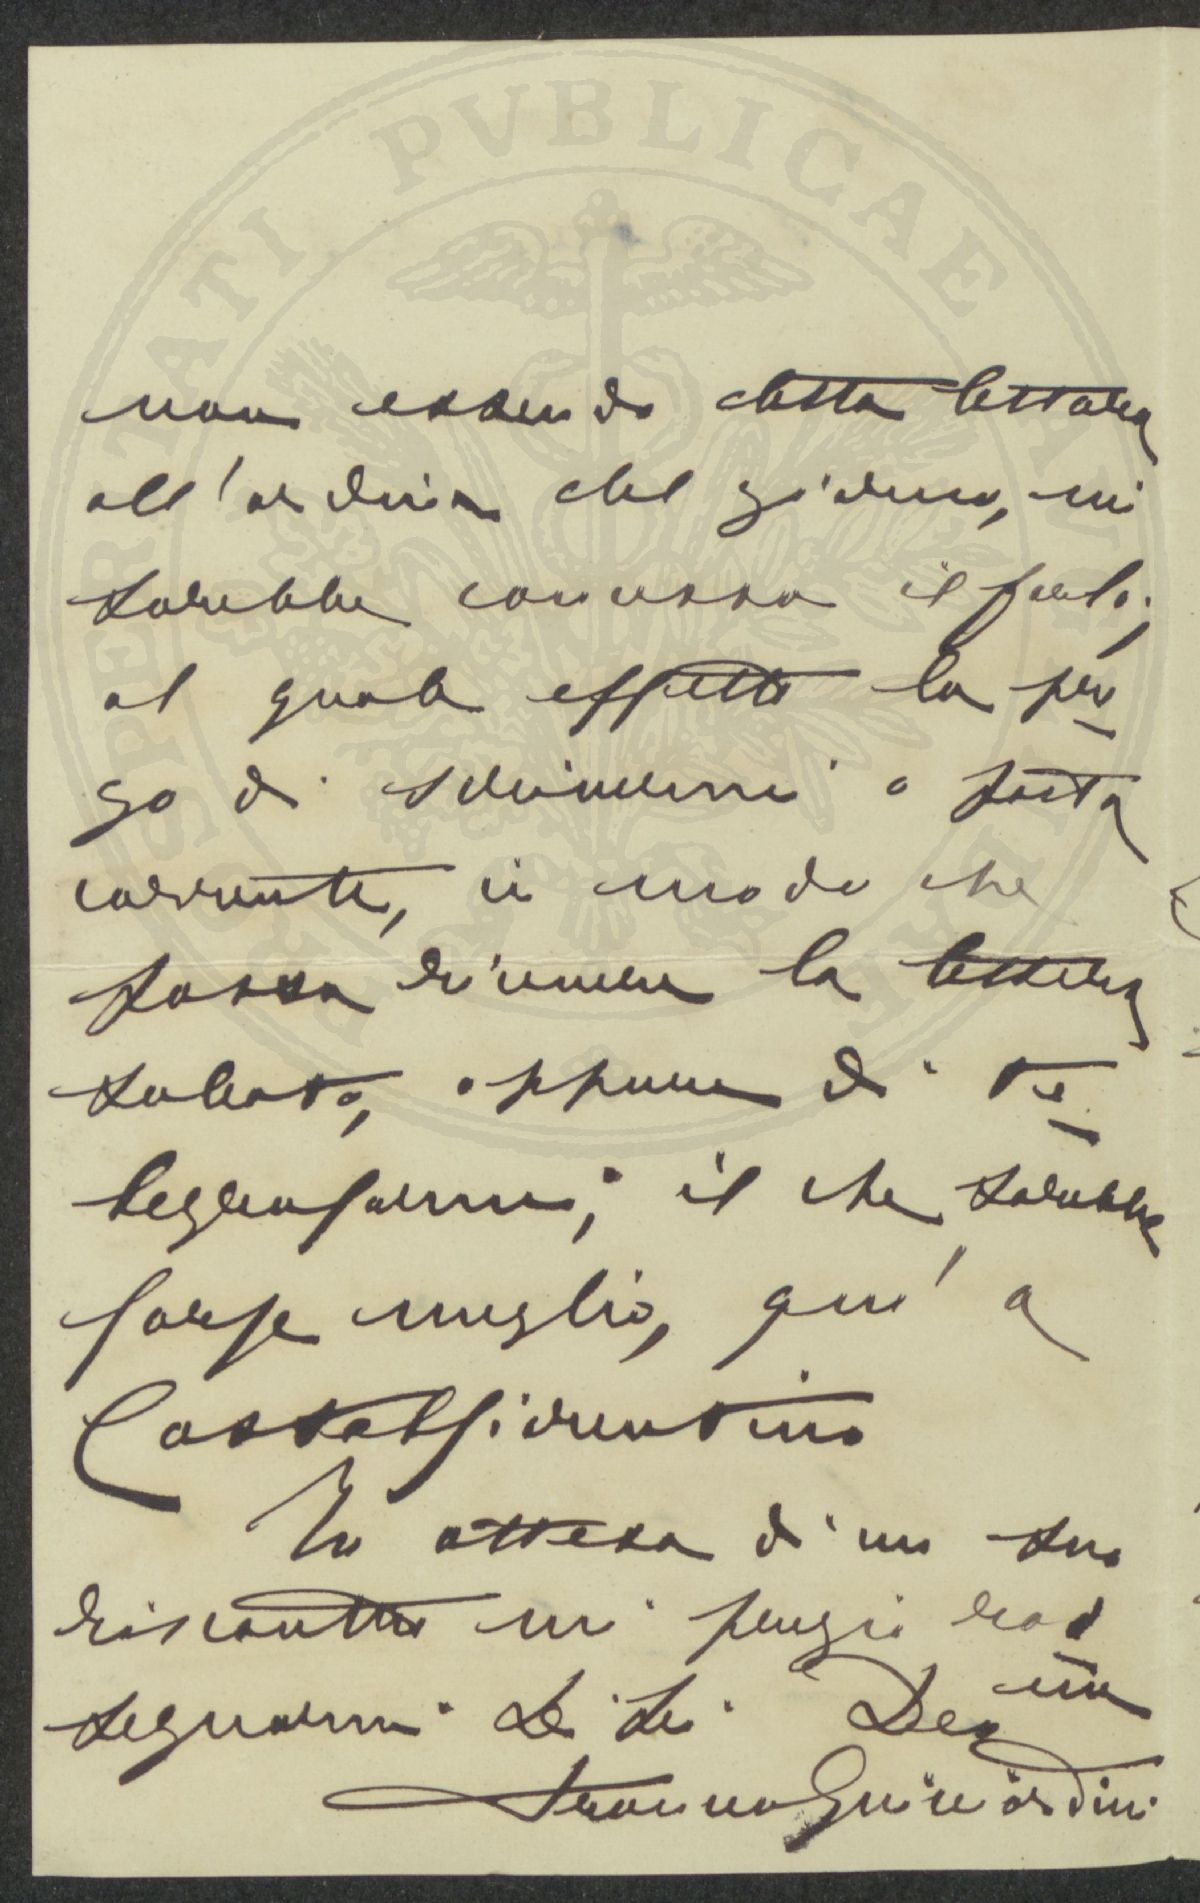 PROSPERITATI PVBLICAE AVGENDAE
non essendo detta lettera
all'ordine del giorno, mi
sarebbe concesso il farlo;
al quale effetto la pre
go di scrivermi a posta
corrente, in modo che
possa ricevere la lettera
sabato, oppure di te
legrafarmi; il che, sarebbe
forse meglio, qui' a
Castelfiorentino
In attesa di un suo
riscontro mi pregio ras
segnarmi di Lei Dev mo
Francesco Guicciardini